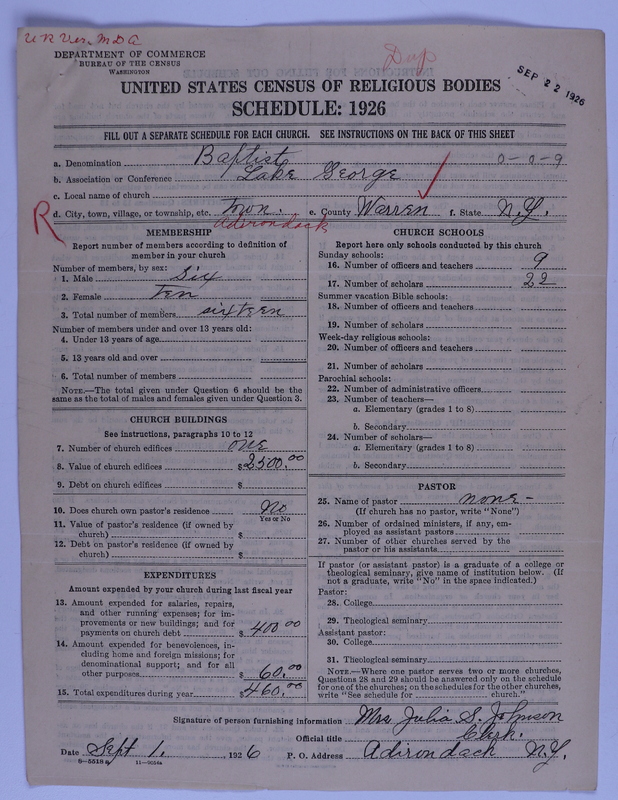 U.R. Ves. M.D.A
DEPARTMENT OF COMMERCE
BUREAU OF THE CENSUS
WASHINGTON
Dup
SEP 22 1926
UNITED STATES CENSUS OF RELIGIOUS BODIES
SCHEDULE: 1926
FILL OUT A SEPARATE SCHEDULE FOR EACH CHURCH. SEE INSTRUCTIONS ON THE BACK OF THIS SHEET
a. Denomination Baptist 0-0-9
b. Association or Conference Lake George
c. Local name of church
d. City, town, village, or township, etc. Town. e. County Warren f. State N.Y.
R
Adirondack
MEMBERSHIP
Report number of members according to definition of
member in your church
Number of members, by sex:
1. Male Six
2. Female Ten
3. Total number of members sixteen
Number of members under and over 13 years old:
4. Under 13 years of age
5. 13 years old and over
6. Total number of members
NOTE.—The total given under Question 6 should be the
same as the total of males and females given under Question 3.
CHURCH BUILDINGS
See instructions, paragraphs 10 to 12
7. Number of church edifices one
8. Value of church edifices $2500.00
9. Debt on church edifices $
10. Does church own pastor's residence No
Yes or No
11. Value of pastor's residence (if owned by
church) $
12. Debt on pastor's residence (if owned by
church) $
EXPENDITURES
Amount expended by your church during last fiscal year
13. Amount expended for salaries, repairs,
and other running expenses; for im-
provements or new buildings; and for
payments on church debt $400.00
14. Amount expended for benevolences, in-
cluding home and foreign missions; for
denominational support; and for all
other purposes $60.00
15. Total expenditures during year $460.00
CHURCH SCHOOLS
Report here only schools conducted by this church
Sunday schools:
16. Number of officers and teachers 9
17. Number of scholars 22
Summer vacation Bible schools:
18. Number of officers and teachers
19. Number of scholars
Week-day religious schools:
20. Number of officers and teachers
21. Number of scholars
Parochial schools:
22. Number of administrative officers
23. Number of teachers—
a. Elementary (grades 1 to 8)
b. Secondary
24. Number of scholars—
a. Elementary (grades 1 to 8)
b. Secondary
PASTOR
25. Name of pastor none-
(If church has no pastor, write "None")
26. Number of ordained ministers, if any, em-
ployed as assistant pastors
27. Number of other churches served by the
pastor or his assistants
If pastor (or assistant pastor) is a graduate of a college or
theological seminary, give name of institution below. (If
not a graduate, write "No" in the space indicated.)
Pastor:
28. College
29. Theological seminary
Assistant pastor:
30. College
31. Theological seminary
NOTE.—Where one pastor serves two or more churches,
Questions 28 and 29 should be answered only on the schedule
for one of the churches; on the schedules for the other churches,
write "See schedule for church."
Signature of person furnishing information Mrs. Julia S. Johnson
Official title Clerk.
Date Sept 1, 1926 P. O. Address Adirondack N.Y.
8-5518 11-9056